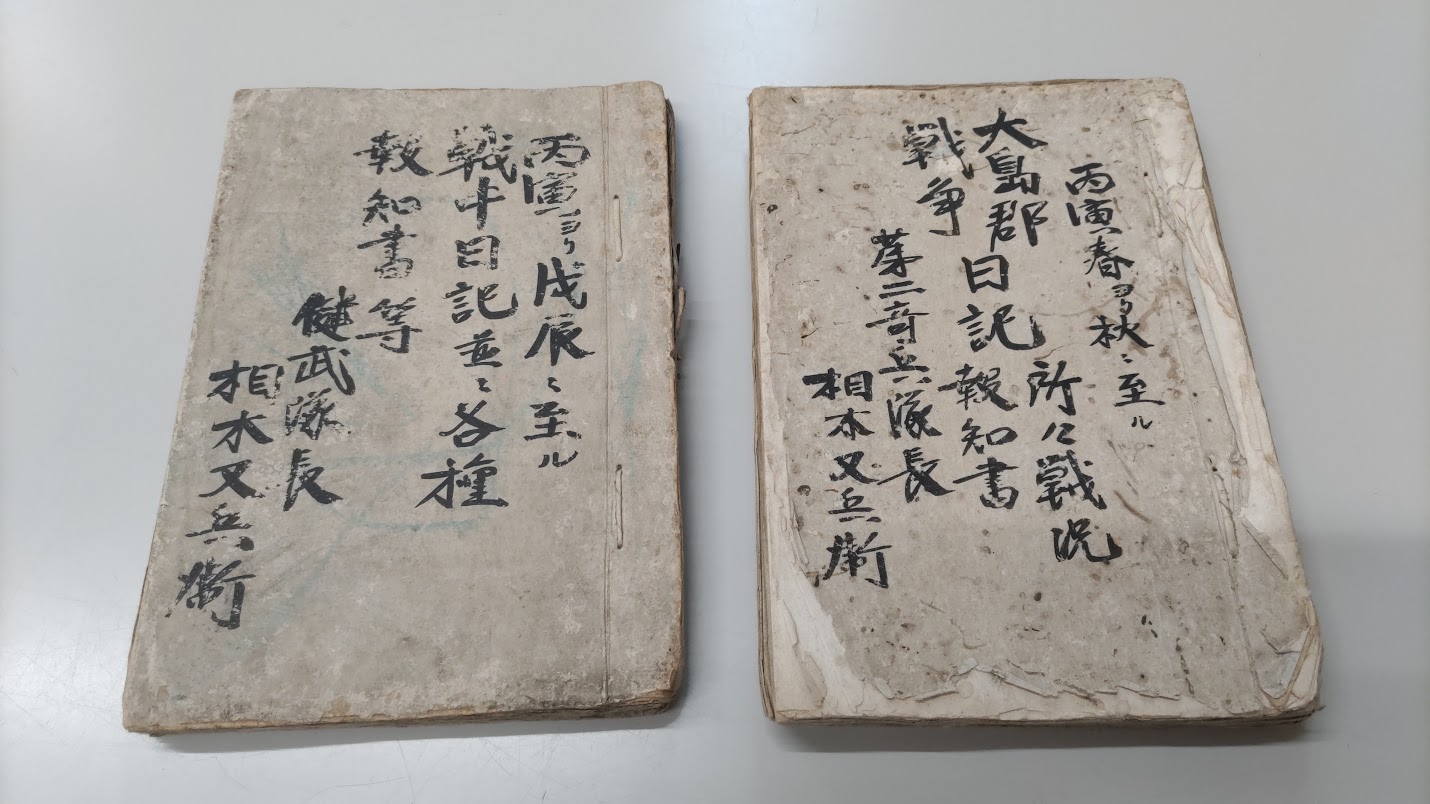 丙寅春ヨリ秋ニ至ル
大島郡
戦争
日記
所々戦況
報知書
第二奇兵隊長
相木又兵衛
丙寅ヨリ戊辰ニ至ル
戦斗日記並ニ各種
報知書等
健武隊長
相木又兵衛